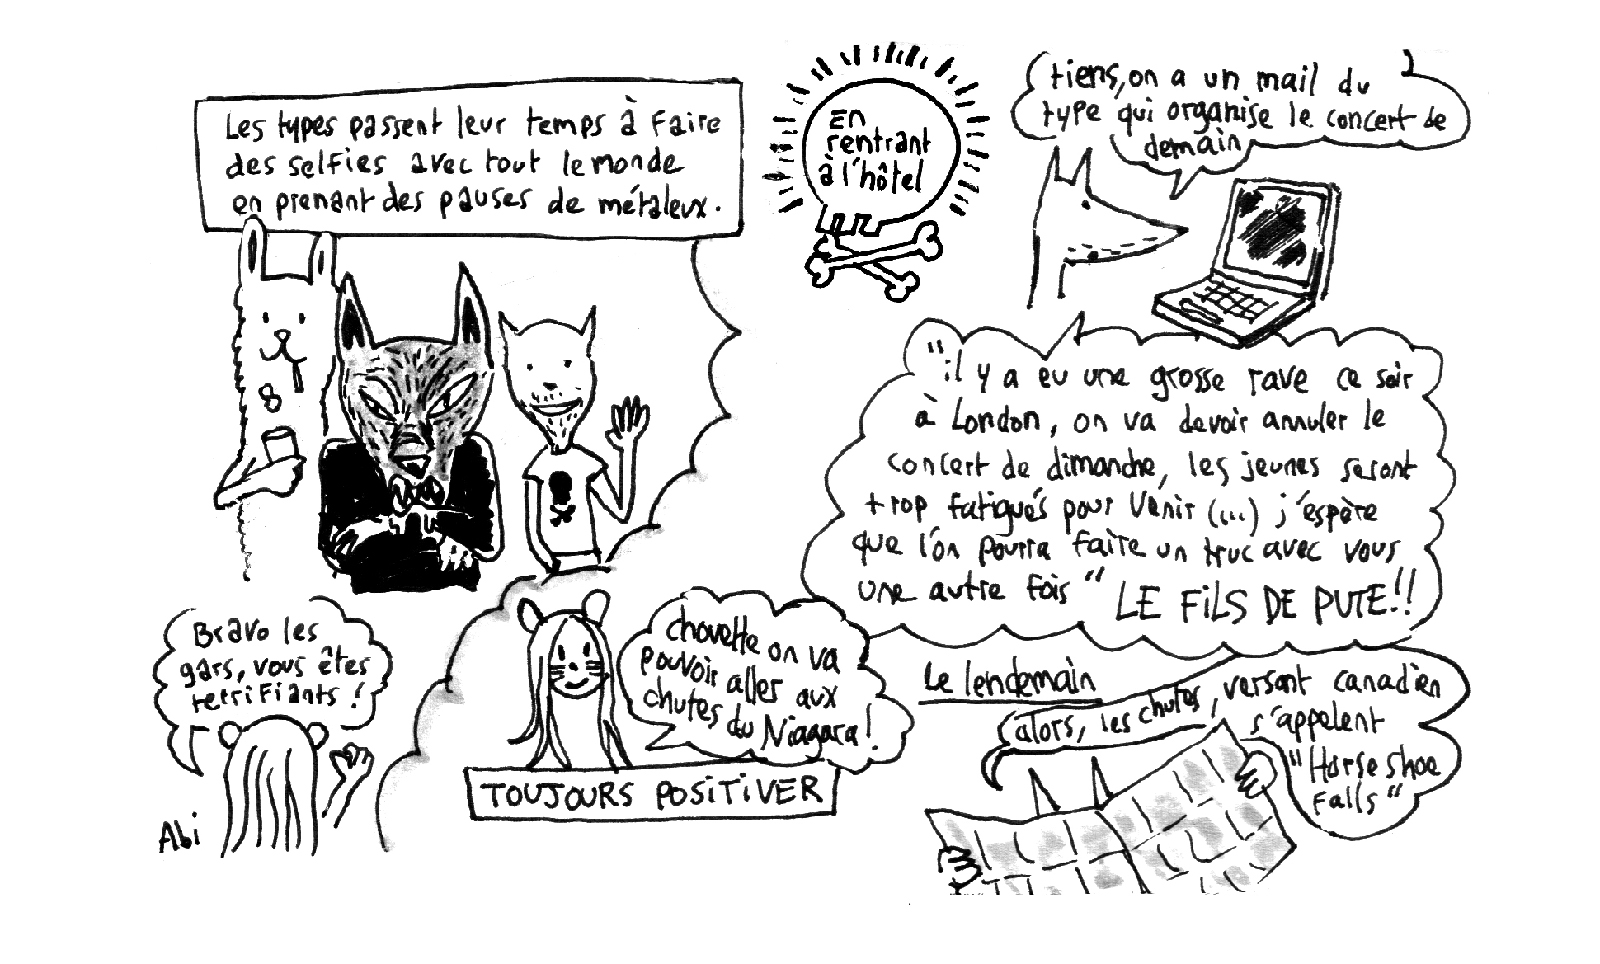 Les types passent leur temps à faire
des selfies avec tout le monde
en prenant des pauses de métaleux.
Bravo les
gars, vous êtes
terrifiants !
Abi
En
rentrant
à l'hôtel
tiens, on a un mail du
type qui organise le concert de
demain
"il y a eu une grosse rave ce soir
à London, on va devoir annuler le
concert de dimanche, les jeunes seront
trop fatigués pour venir (...) j'espère
que l'on pourra faire un truc avec vous
une autre fois" LE FILS DE PUTE!!
chouette on va
pouvoir aller aux
chutes du Niagara!
TOUJOURS POSITIVER
Le lendemain
alors, les chutes, versant canadien
s'appelent
"Horse shoe
Falls"